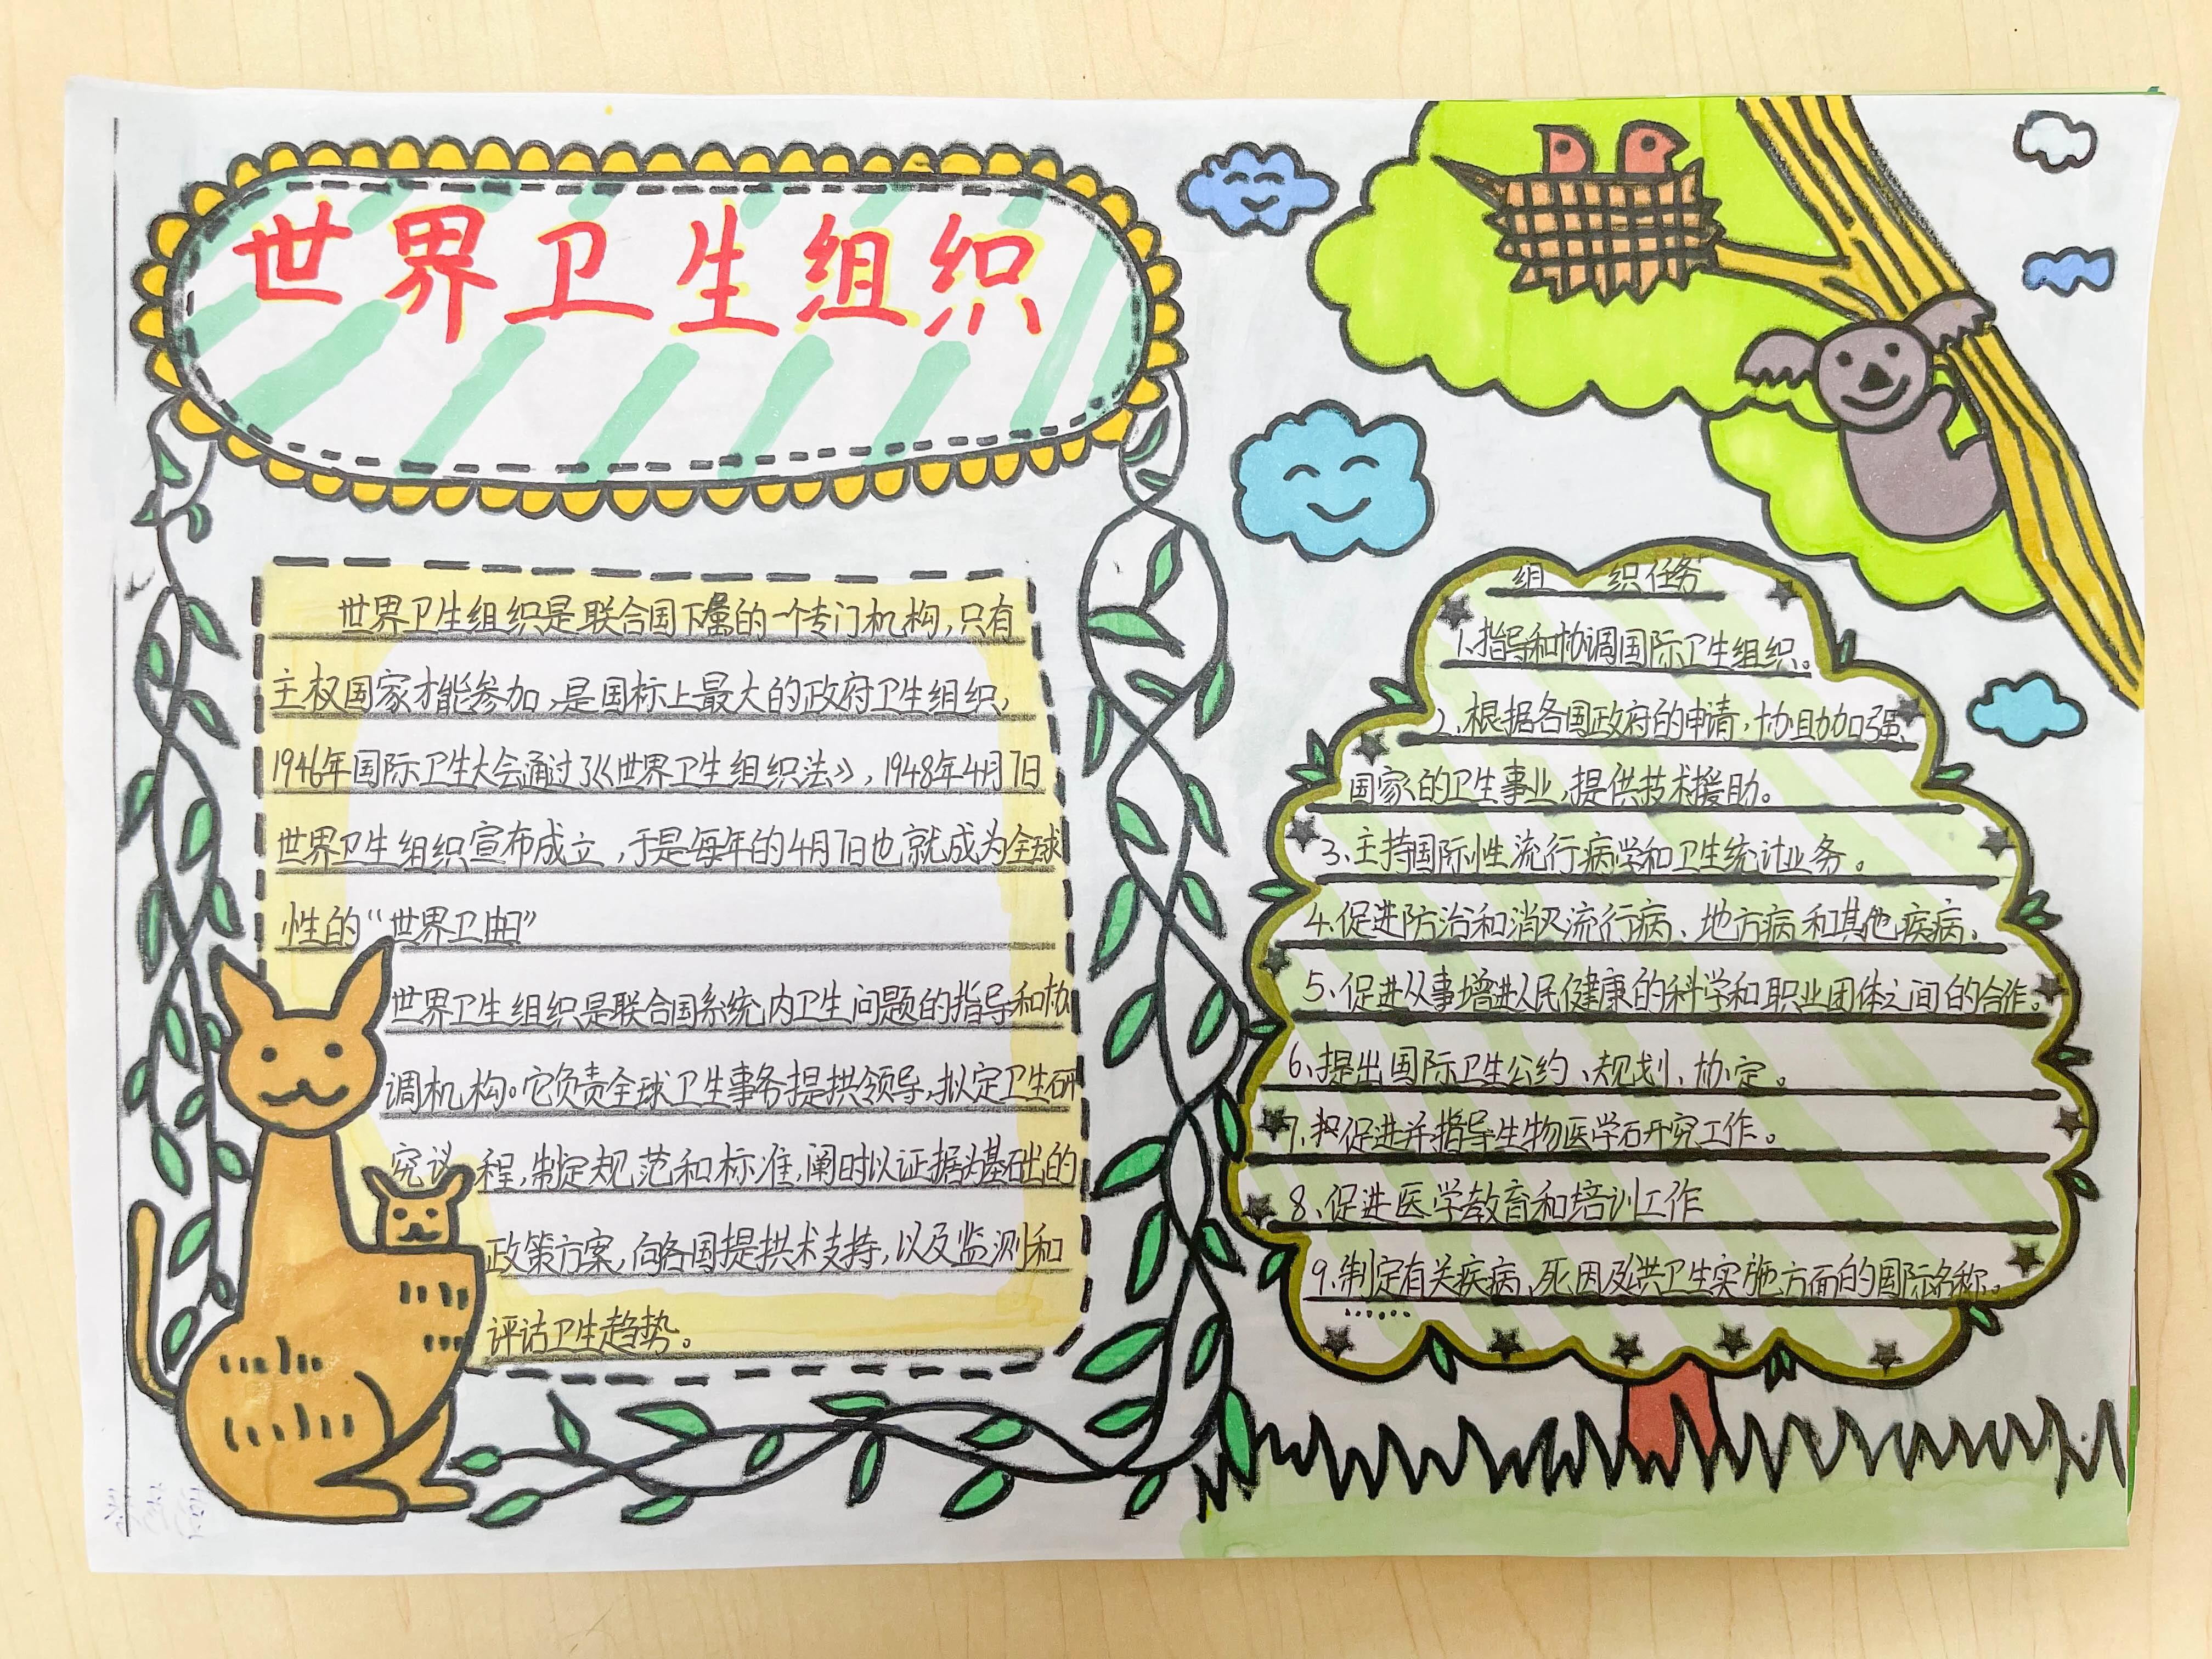 世界卫生组织
世界卫生组织是联合国下属的一个专门机构,只有
主权国家才能参加,是国标上最大的政府卫生组织,
1946年国际卫生大会通过了《世界卫生组织法》,1948年4月7日
世界卫生组织宣布成立,于是每年的4月7日也就成为全球
性的“世界卫
世界卫生组织是联合国系统内卫生问题的指导和协
调机构。它负责全球卫生事务提拱领导,拟定卫生研
究议程,制定规范和标准,阐时以证据为基础的
政策方案,向各国提拱术支持,以及监测和
评估卫生趋势。
组 织任务
1、指导和协调国际卫生组织。
2、根据各国政府的申请,协助加强
国家的卫生事业,提供技术援助。
3、主持国际性流行病学和卫生统计业务。
4、促进防治和消灭流行病、地方病和其他疾病。
5、促进从事增进人民健康的科学和职业团体之间的合作。
6、提出国际卫生公约、规划、协定。
7、促进并指导生物医学研究工作。
8、促进医学教育和培训工作
9、制定有关疾病、死因及公共卫生实施方面的国际名称。
……